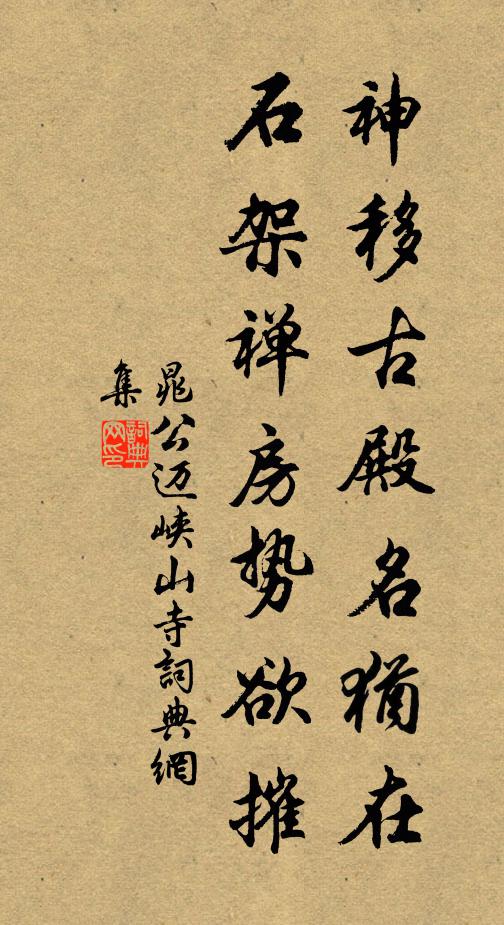 神移古殿名猶在
石架禅房势欲摧
晁公迈峡山寺詞典網
集
詞典网印